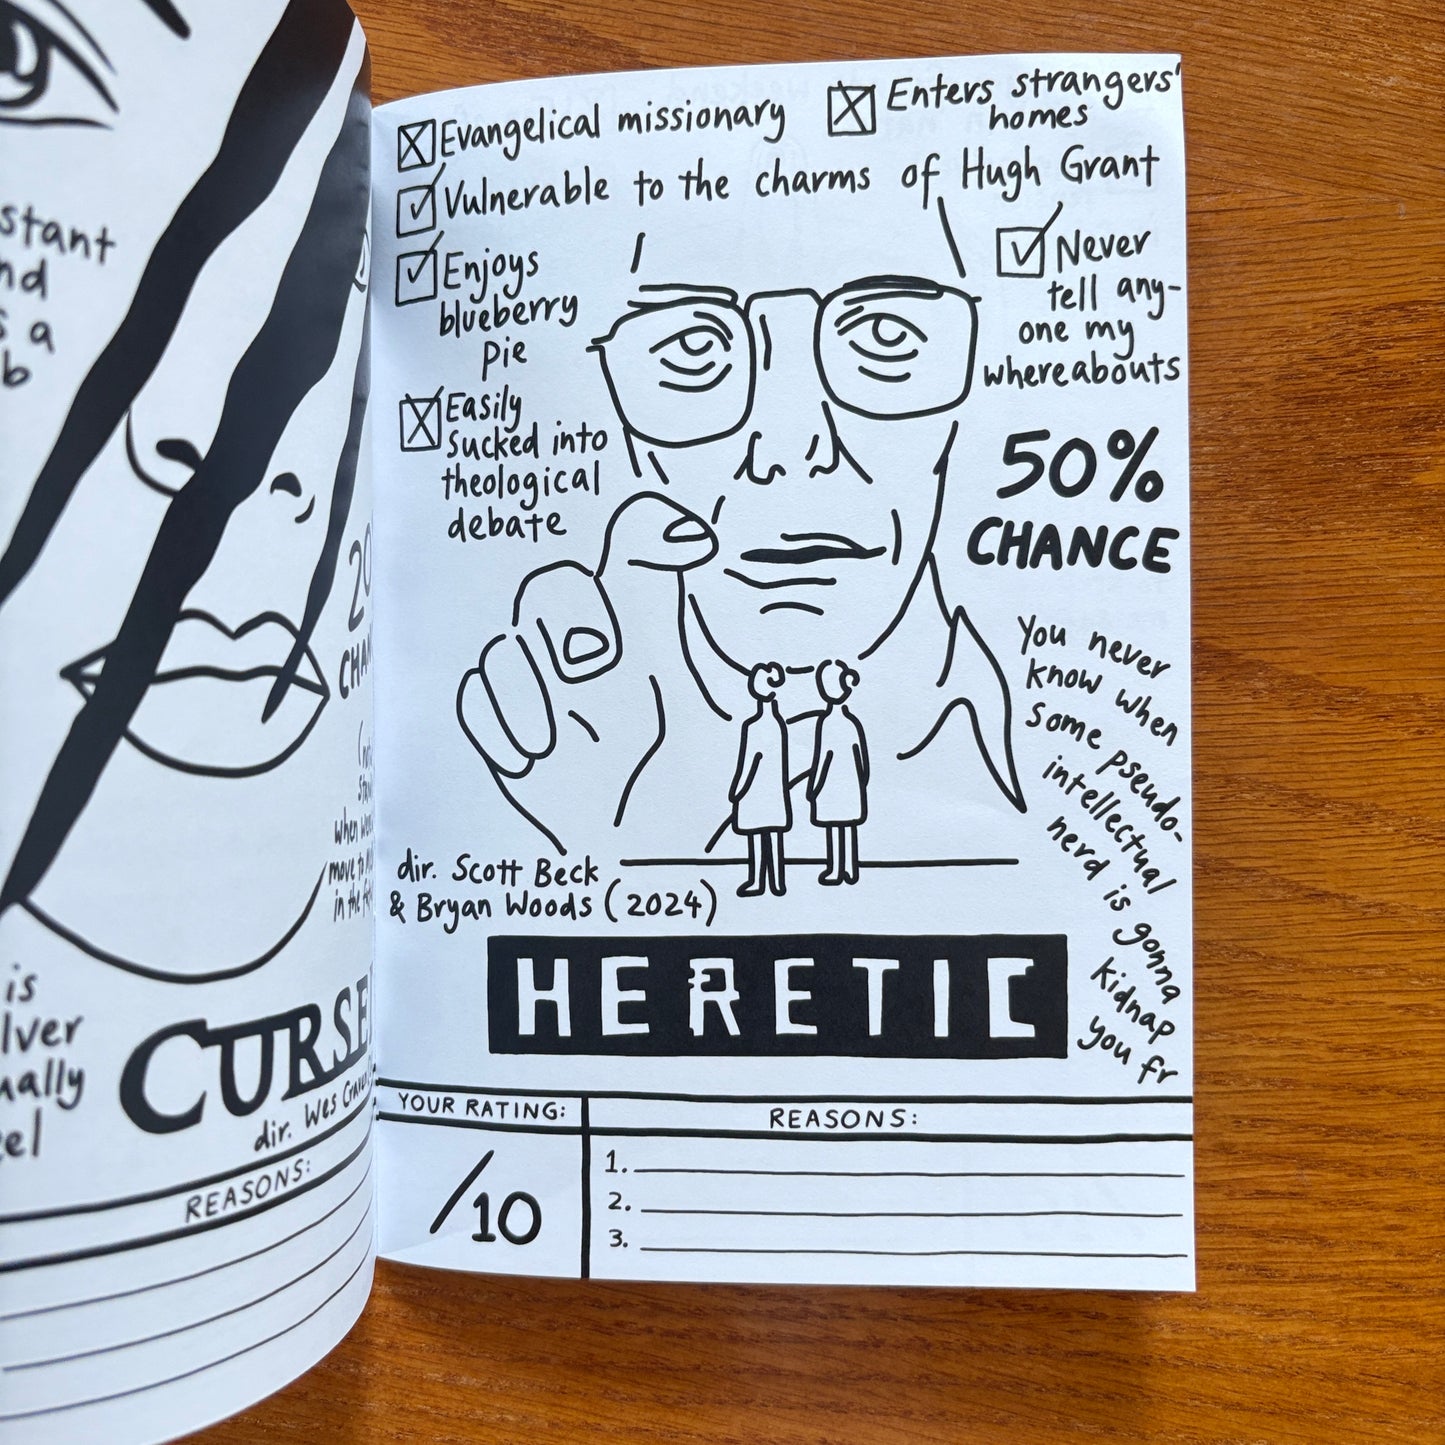 stant
nd
s a
b
20
CHAN
when were
move to
in the
is
lver
ually
eel
CURSE
dir. Wes Craven
REASONS:
Evangelical missionary
Enters strangers'
homes
Vulnerable to the charms of Hugh Grant
Enjoys
blueberry
pie
Never
tell any-
one my
whereabouts
Easily
sucked into
theological
debate
50%
CHANCE
You never
know when
some pseudo-
intellectual
nerd is gonna
kidnap
you fr
dir. Scott Beck
& Bryan Woods (2024)
HERETIC
YOUR RATING:
REASONS:
/10
1.
2.
3.